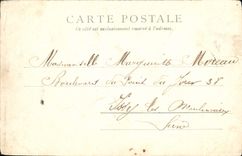 CARTE POSTALE
Ce côté est exclusivement réservé à l'adresse.
Mademoiselle Marguerite Moreau
Boulevard du Point du Jour 38
Issy les Moulineaux
Seine